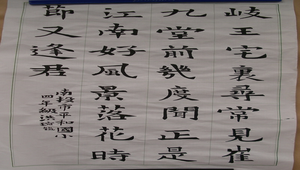 岐王宅裏尋常見崔
九堂前幾度聞正是
江南好風景落花時
節又逢君
南投市平和國小
四年級